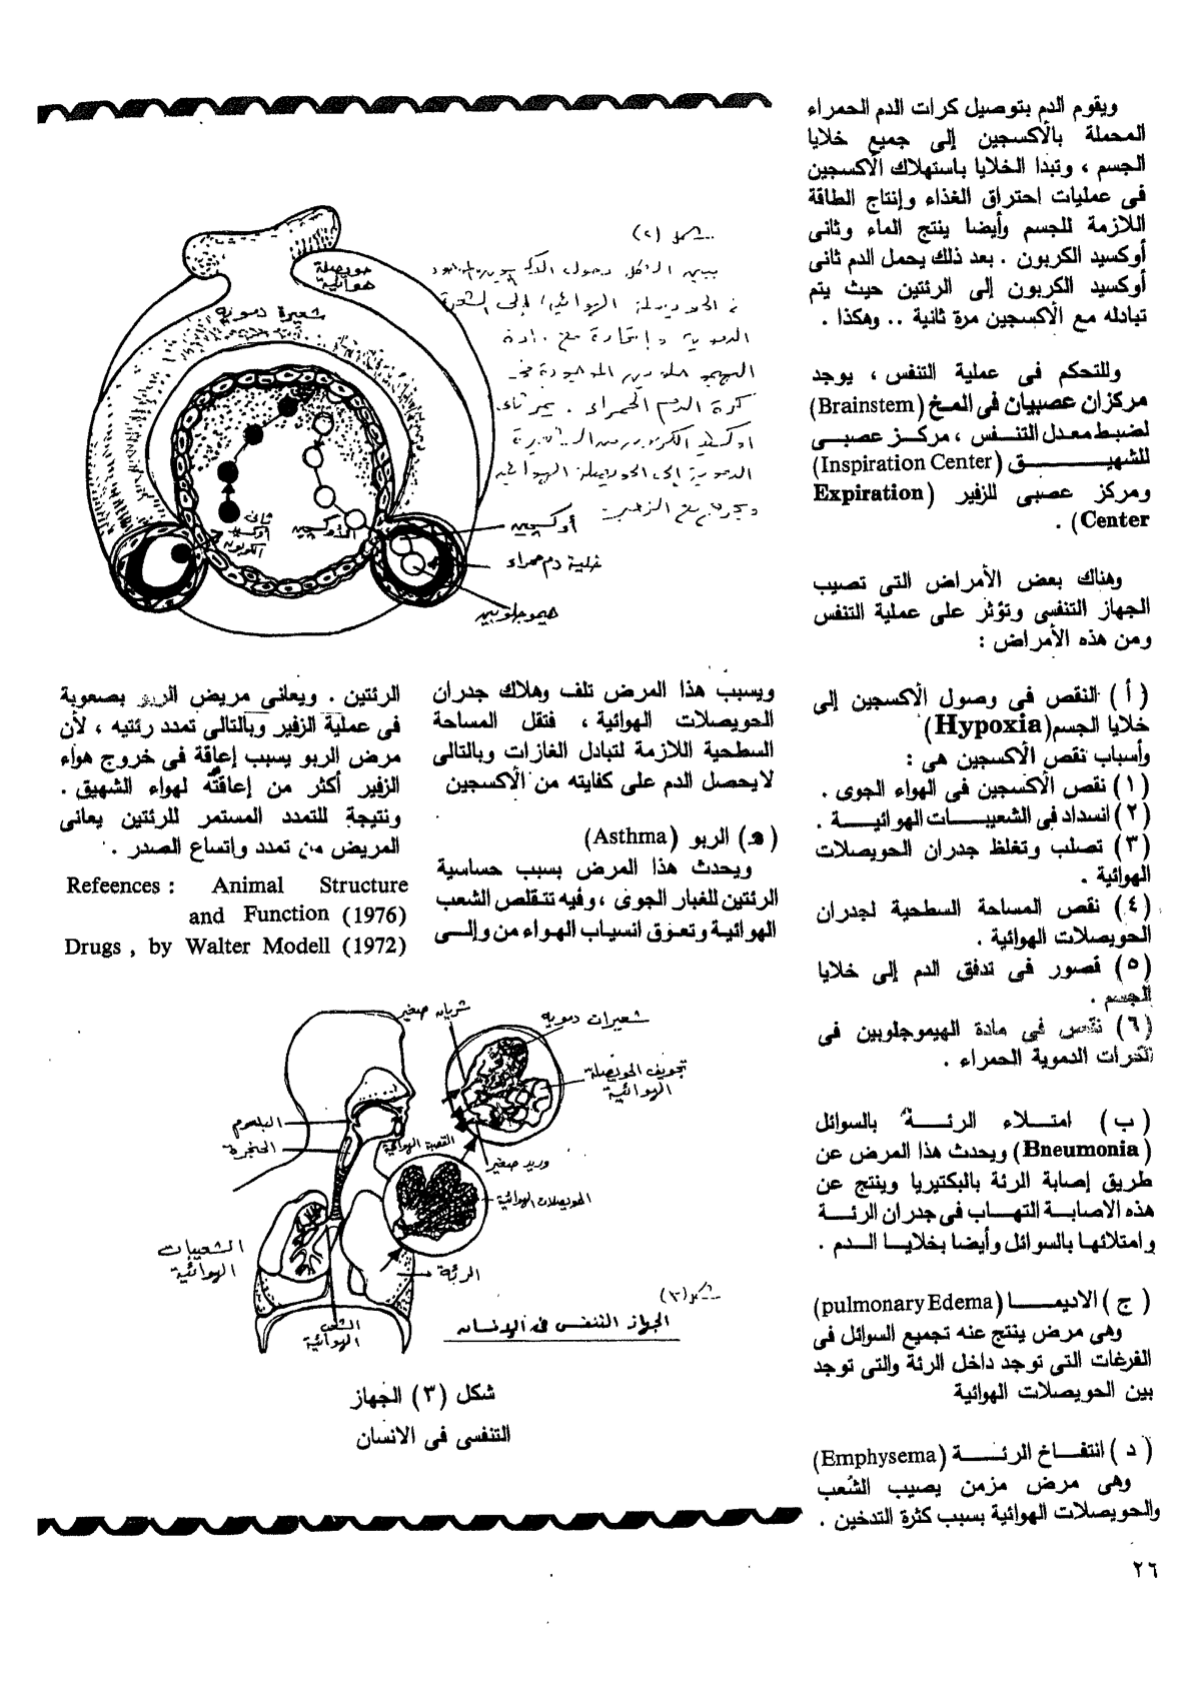 ويقوم الدم بتوصيل كرات الدم الحمراء
المحملة بالأكسجين إلى جميع خلايا
الجسم ، وتبدا الخلايا باستهلاك الأكسجين
فى عمليات احتراق الغذاء وإنتاج الطاقة
اللازمة للجسم وأيضا ينتج الماء وثانى
أوكسيد الكربون . بعد ذلك يحمل الدم ثانى
أوكسيد الكربون إلى الرئتين حيث يتم
تبادله مع الأكسجين مرة ثانية .. وهكذا .
وللتحكم فى عملية التنفس ، يوجد
مركزان عصبيان فى المخ (Brainstem)
لضبط معدل التنفس ، مركز عصبى
للشهيق (Inspiration Center)
ومركز عصبى للزفير (Expiration
Center) .
وهناك بعض الأمراض التى تصيب
الجهاز التنفسى وتؤثر على عملية التنفس
ومن هذه الأمراض :
( أ ) النقص فى وصول الأكسجين إلى
خلايا الجسم (Hypoxia)
وأسباب نقص الأكسجين هى :
(١) نقص الأكسجين فى الهواء الجوى .
(٢) انسداد فى الشعيبات الهوائية .
(٣) تصلب وتغلظ جدران الحويصلات
الهوائية .
(٤) نقص المساحة السطحية لجدران
الحويصلات الهوائية .
(٥) قصور فى تدفق الدم إلى خلايا
الجسم .
(٦) نقص فى مادة الهيموجلوبين فى
الكرات الدموية الحمراء .
( ب ) امتلاء الرئة بالسوائل
(Bneumonia) ويحدث هذا المرض عن
طريق إصابة الرئة بالبكتيريا وينتج عن
هذه الاصابة التهاب فى جدران الرئة
وامتلائها بالسوائل وأيضا بخلايا الدم .
( ج ) الاديما (pulmonary Edema)
وهى مرض ينتج عنه تجميع السوائل فى
الفرغات التى توجد داخل الرئة والتى توجد
بين الحويصلات الهوائية
( د ) انتفاخ الرئة (Emphysema)
وهى مرض مزمن يصيب الشعب
والحويصلات الهوائية بسبب كثرة التدخين .
شكل (٢)
يبين الشكل دخول
الحويصلة الهوائية إلى الشعيرة
الدموية
كرة الدم الحمراء .
الدموية إلى الحويصلة الهوائية
حويصلة
هوائية
شعيرة دموية
ثانى
أوكسيد
الكربون
الأوكسجين
أوكسجين
خلية دم حمراء
هيموجلوبين
ويسبب هذا المرض تلف وهلاك جدران
الحويصلات الهوائية ، فتقل المساحة
السطحية اللازمة لتبادل الغازات وبالتالى
لايحصل الدم على كفايته من الأكسجين
(هـ) الربو (Asthma)
ويحدث هذا المرض بسبب حساسية
الرئتين للغبار الجوى ، وفيه تتقلص الشعب
الهوائية وتعوق انسياب الهواء من وإلى
الرئتين . ويعانى مريض الربو بصعوبة
فى عملية الزفير وبالتالى تمدد رئتيه ، لأن
مرض الربو يسبب إعاقة فى خروج هواء
الزفير أكثر من إعاقته لهواء الشهيق .
ونتيجة للتمدد المستمر للرئتين يعانى
المريض من تمدد واتساع الصدر .
Refeences : Animal Structure
and Function (1976)
Drugs , by Walter Modell (1972)
شريان صغير
شعيرات دموية
تجويف الحويصلة
الهوائية
البلعوم
الحنجرة
القصبة الهوائية
وريد صغير
الحويصلات الهوائية
الشعيبات
الهوائية
الرئة
الشعب
الهوائية
شكل (٣)
الجهاز التنفسى فى الإنسان
شكل (٣) الجهاز
التنفسى فى الانسان
٢٦